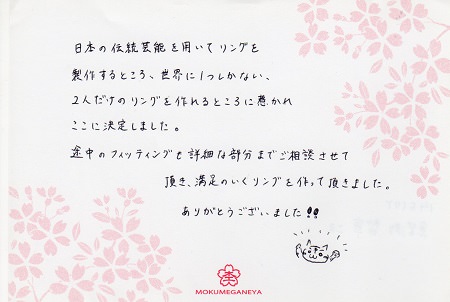 日本の伝統芸能を用いてリングを
製作するところ、世界に1つしかない、
2人だけのリングを作れるところに惹かれ
ここに決定しました。
途中のフィッティングも詳細な部分までご相談させて
頂き、満足のいくリングを作って頂きました。
ありがとうございました!!
MOKUMEGANEYA